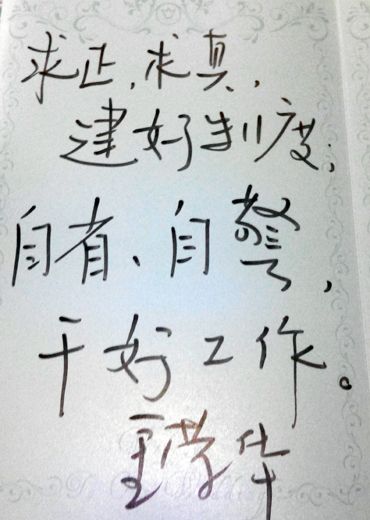 求正，求真，
建好制度；
自省、自警，
干好工作。